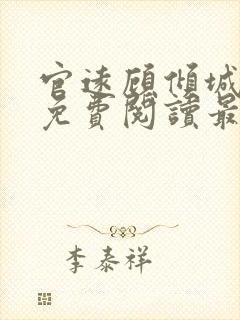 官途顾倾城
免费阅读最
李泰祥